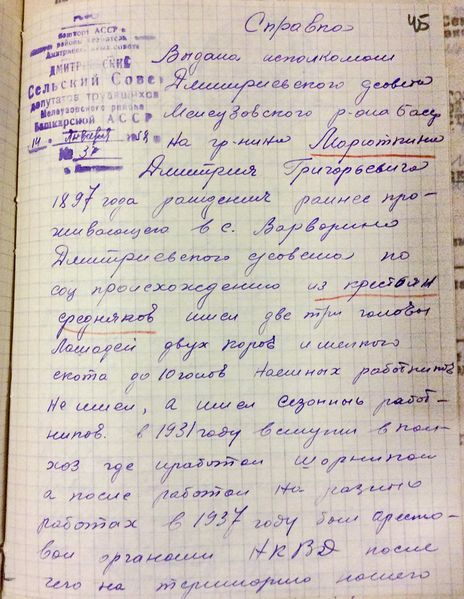 45
Справка
Башкорт АССР
ДМИТРИЕВСКИЙ
Сельский Совет
депутатов трудящихся
Мелеузовского района
Башкирской АССР
14 Января 1958
№ 37
Выдана исполкомом
Дмитриевского с/совета
Меиузовского р-она Басср
на гр-нина Марюткина
Дмитрия Григорьевича
1897 года рождения раннее про-
живающего в с. Варварино
Дмитриевского с/совета по
соц происхождению из крестьян
средняков имел две три головы
лошадей двух коров и мелкого
скота до 10 голов наемных работников
не имел, а имел сезонных работ-
ников. в 1931 году вступил в кол-
хоз где работал шорником
а после работал на разных
работах в 1937 году был аресто-
ван органами НКВД после
чего на территорию нашего